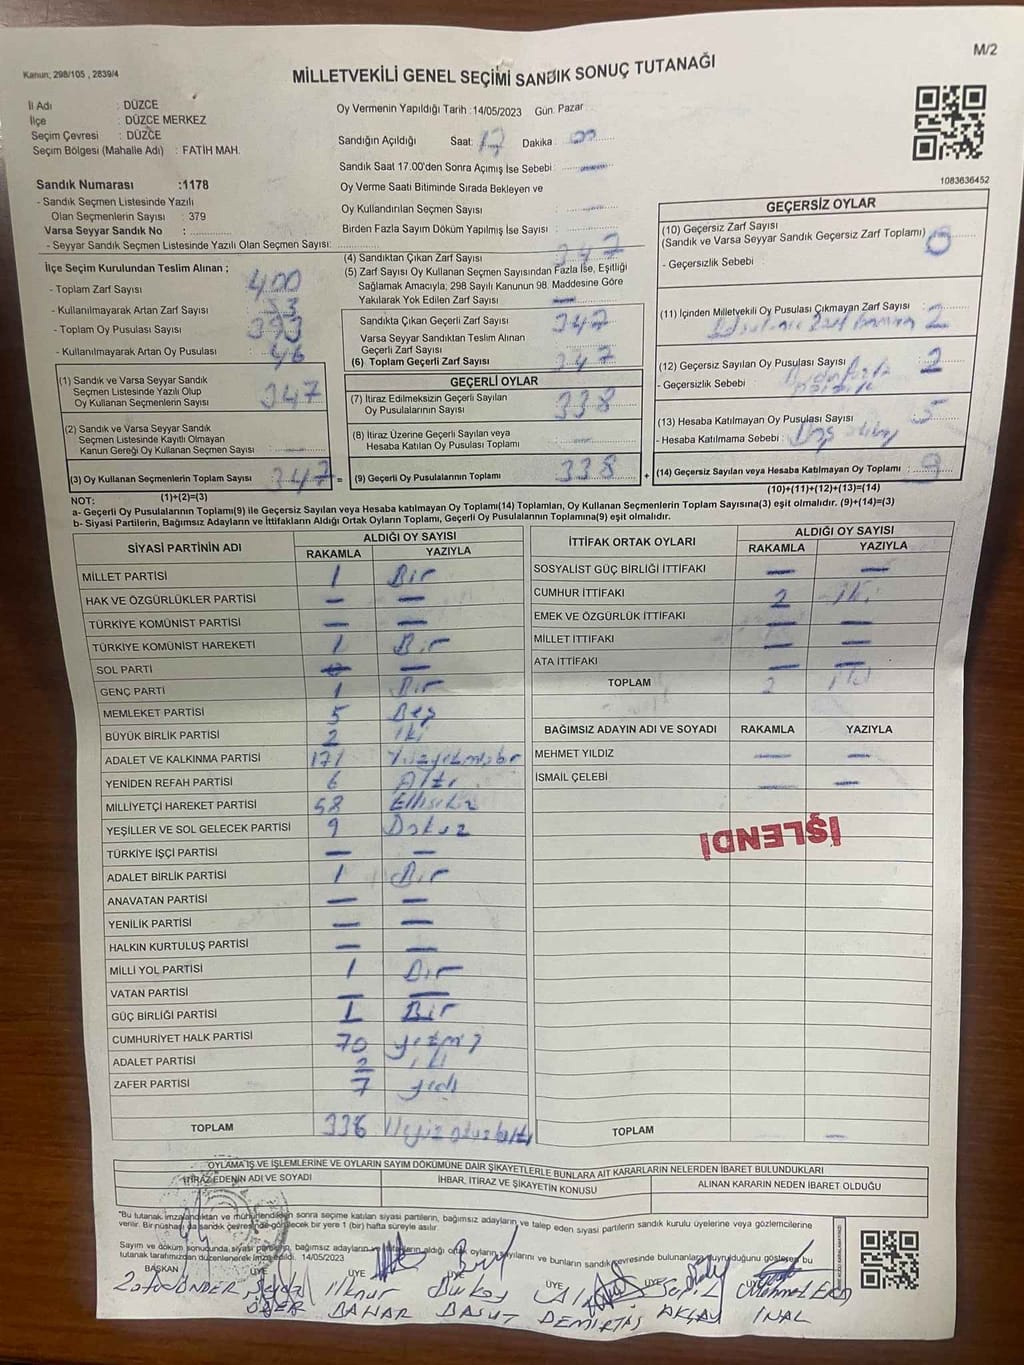 M/2
Kanun; 298/105 , 2839/4
MİLLETVEKİLİ GENEL SEÇİMİ SANDIK SONUÇ TUTANAĞI
İl Adı : DÜZCE
İlçe : DÜZCE MERKEZ
Seçim Çevresi : DÜZCE
Seçim Bölgesi (Mahalle Adı) : FATİH MAH.
Oy Vermenin Yapıldığı Tarih :14/05/2023 Gün: Pazar
Sandığın Açıldığı Saat: 17 Dakika : 00
Sandık Saat 17.00'den Sonra Açımış İse Sebebi : —
Oy Verme Saati Bitiminde Sırada Bekleyen ve
Oy Kullandırılan Seçmen Sayısı : —
Birden Fazla Sayım Döküm Yapılmış İse Sayısı :
1083636452
Sandık Numarası :1178
- Sandık Seçmen Listesinde Yazılı
Olan Seçmenlerin Sayısı : 379
Varsa Seyyar Sandık No :
- Seyyar Sandık Seçmen Listesinde Yazılı Olan Seçmen Sayısı:
İlçe Seçim Kurulundan Teslim Alınan ;
- Toplam Zarf Sayısı : 400
- Kullanılmayarak Artan Zarf Sayısı : 53
- Toplam Oy Pusulası Sayısı : 393
- Kullanılmayarak Artan Oy Pusulası : 46
(1) Sandık ve Varsa Seyyar Sandık
Seçmen Listesinde Yazılı Olup
Oy Kullanan Seçmenlerin Sayısı : 347
(2) Sandık ve Varsa Seyyar Sandık
Seçmen Listesinde Kayıtlı Olmayan
Kanun Gereği Oy Kullanan Seçmen Sayısı : —
(3) Oy Kullanan Seçmenlerin Toplam Sayısı : 347 =
(1)+(2)=(3)
(4) Sandıktan Çıkan Zarf Sayısı : 347
(5) Zarf Sayısı Oy Kullanan Seçmen Sayısından Fazla İse, Eşitliği
Sağlamak Amacıyla, 298 Sayılı Kanunun 98. Maddesine Göre
Yakılarak Yok Edilen Zarf Sayısı : —
Sandıkta Çıkan Geçerli Zarf Sayısı : 347
Varsa Seyyar Sandıktan Teslim Alınan
Geçerli Zarf Sayısı :
(6) Toplam Geçerli Zarf Sayısı : 347
GEÇERLİ OYLAR
(7) İtiraz Edilmeksizin Geçerli Sayılan
Oy Pusulalarının Sayısı : 338
(8) İtiraz Üzerine Geçerli Sayılan veya
Hesaba Katılan Oy Pusulası Toplamı : —
(9) Geçerli Oy Pusulalarının Toplamı : 338 +
GEÇERSİZ OYLAR
(10) Geçersiz Zarf Sayısı
(Sandık ve Varsa Seyyar Sandık Geçersiz Zarf Toplamı) : 0
- Geçersizlik Sebebi :
(11) İçinden Milletvekili Oy Pusulası Çıkmayan Zarf Sayısı : 2
(12) Geçersiz Sayılan Oy Pusulası Sayısı : 2
- Geçersizlik Sebebi :
(13) Hesaba Katılmayan Oy Pusulası Sayısı : 5
- Hesaba Katılmama Sebebi :
(14) Geçersiz Sayılan veya Hesaba Katılmayan Oy Toplamı : 9
(10)+(11)+(12)+(13)=(14)
NOT:
a- Geçerli Oy Pusulalarının Toplamı(9) ile Geçersiz Sayılan veya Hesaba katılmayan Oy Toplamı(14) Toplamları, Oy Kullanan Seçmenlerin Toplam Sayısına(3) eşit olmalıdır. (9)+(14)=(3)
b- Siyasi Partilerin, Bağımsız Adayların ve İttifakların Aldığı Ortak Oyların Toplamı, Geçerli Oy Pusulalarının Toplamına(9) eşit olmalıdır.
SİYASİ PARTİNİN ADI ALDIĞI OY SAYISI
RAKAMLA YAZIYLA
MİLLET PARTİSİ 1 Bir
HAK VE ÖZGÜRLÜKLER PARTİSİ — —
TÜRKİYE KOMÜNİST PARTİSİ — —
TÜRKİYE KOMÜNİST HAREKETİ 1 Bir
SOL PARTİ — —
GENÇ PARTİ 1 Bir
MEMLEKET PARTİSİ 5 Beş
BÜYÜK BİRLİK PARTİSİ 2 iki
ADALET VE KALKINMA PARTİSİ 171 Yüzyetmişbir
YENİDEN REFAH PARTİSİ 6 Altı
MİLLİYETÇİ HAREKET PARTİSİ 58 Ellisekiz
YEŞİLLER VE SOL GELECEK PARTİSİ 9 Dokuz
TÜRKİYE İŞÇİ PARTİSİ — —
ADALET BİRLİK PARTİSİ 1 Bir
ANAVATAN PARTİSİ — —
YENİLİK PARTİSİ — —
HALKIN KURTULUŞ PARTİSİ — —
MİLLİ YOL PARTİSİ 1 Bir
VATAN PARTİSİ — —
GÜÇ BİRLİĞİ PARTİSİ 1 Bir
CUMHURİYET HALK PARTİSİ 70 yetmiş
ADALET PARTİSİ 2 iki
ZAFER PARTİSİ 7 yedi
TOPLAM 336
İTTİFAK ORTAK OYLARI ALDIĞI OY SAYISI
RAKAMLA YAZIYLA
SOSYALİST GÜÇ BİRLİĞİ İTTİFAKI — —
CUMHUR İTTİFAKI 2 iki
EMEK VE ÖZGÜRLÜK İTTİFAKI — —
MİLLET İTTİFAKI — —
ATA İTTİFAKI — —
TOPLAM 2 iki
BAĞIMSIZ ADAYIN ADI VE SOYADI RAKAMLA YAZIYLA
MEHMET YILDIZ — —
İSMAİL ÇELEBİ — —
İŞLENDİ
TOPLAM — —
OYLAMA İŞ VE İŞLEMLERİNE VE OYLARIN SAYIM DÖKÜMÜNE DAİR ŞİKAYETLERLE BUNLARA AİT KARARLARIN NELERDEN İBARET BULUNDUKLARI
İTİRAZ EDENİN ADI VE SOYADI İHBAR, İTİRAZ VE ŞİKAYETİN KONUSU ALINAN KARARIN NEDEN İBARET OLDUĞU
"Bu tutanak imzalandıktan ve mühürlendikten sonra seçime katılan siyasi partilerin, bağımsız adayların ve talep eden siyasi partilerin sandık kurulu üyelerine veya gözlemcilerine
verilir. Bir nüshası da sandık çevresinde görülecek bir yere 1 (bir) hafta süreyle asılır.
Sayım ve döküm sonucunda siyasi partilerin, bağımsız adayların ve ittifakların aldığı ortak oyların sayılarını ve bunların sandık çevresinde bulunanlara duyrulduğunu gösteren bu
tutanak tarafımızdan düzenlenerek imza edildi. 14/05/2023
BAŞKAN ÜYE ÜYE ÜYE ÜYE ÜYE ÜYE
ÖNDER İlknur Ali Mehmet
BAHAR DEMİRTAŞ AKÇAY İNAL